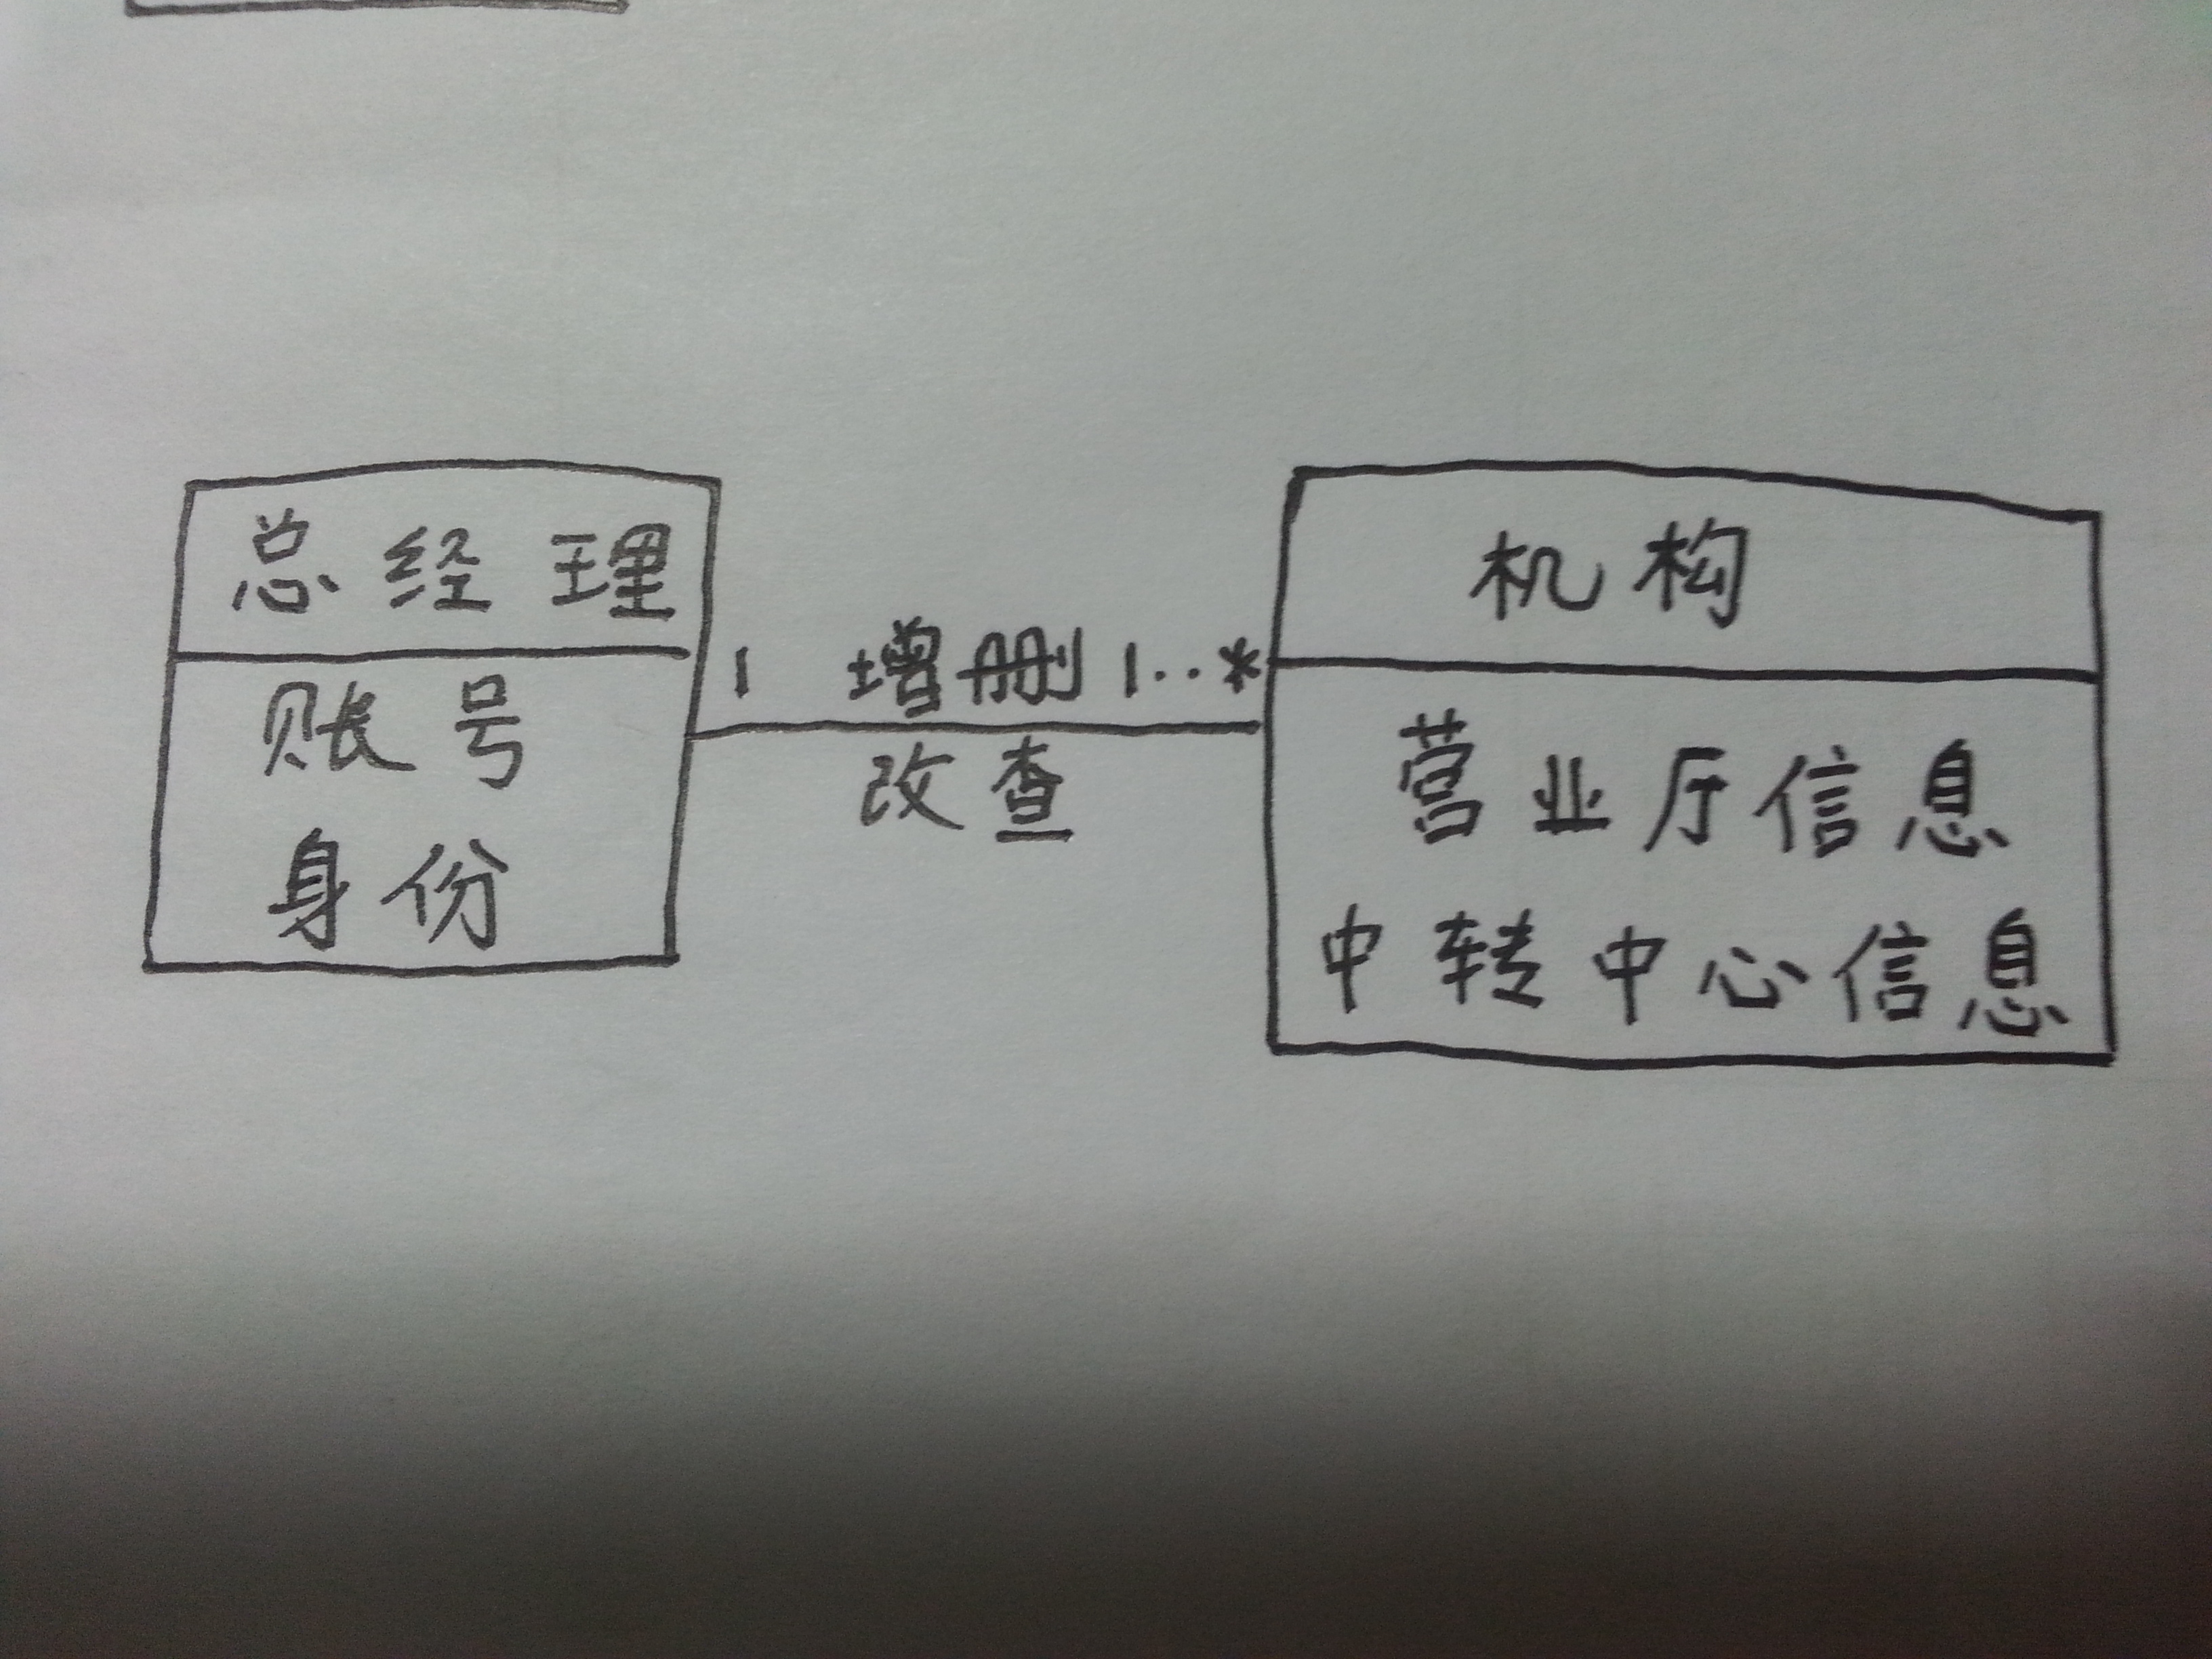 总经理
账号
身份
1 增删 1..*
改查
机构
营业厅信息
中转中心信息